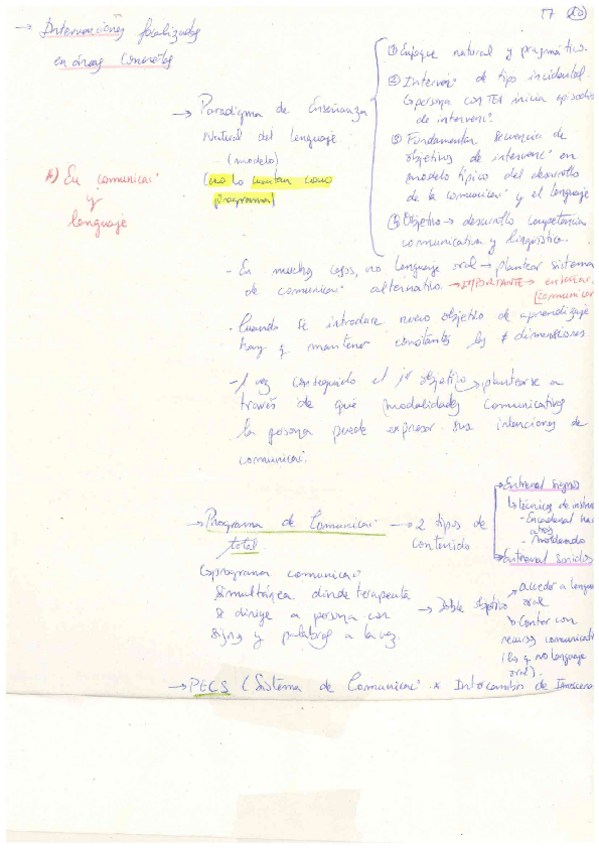 T7 (10)
→ Intervenciones focalizadas
en áreas concretas
A) En comunicac.
y
lenguaje
→ Paradigma de Enseñanza
Natural del lenguaje
(modelo)
(no lo cuentan como
programa)
① Enfoque natural y pragmático.
② Interven. de tipo incidental
persona con TEA inicia episodios
de intervenc.
③ Fundamentar secuencia de
objetivos de intervenc. en
modelo típico del desarrollo
de la comunicac. y el lenguaje
④ Objetivo → desarrollo competencia
comunicativa y lingüística.
- En muchos casos, no lenguaje oral → plantear sistema
de comunicac. alternativo → IMPORTANTE → enseñar
comunicar
- Cuando se introduce nuevo objetivo de aprendizaje
hay q mantener constantes las ≠ dimensiones
- 1 vez conseguido el 1er objetivo → plantearse a
través de qué modalidades comunicativas
la persona puede expresar sus intenciones de
comunicac.
→ Programa de Comunicac.
total
→ 2 tipos de
contenido
→ Entrenar signos
↳ técnicas de instru
- Encadenar hac
atrás
- Moldeado
→ Entrenar sonidos
↳ programa comunicac.
simultánea donde terapeuta
se dirige a persona con
signos y palabras a la vez.
→ Doble objetivo
→ acceder a lengua
oral
↳ Contar con
recursos comunicati
(les q no lenguaje
oral).
→ PECS (Sistema de Comunicac. x Intercambio de Imágenes